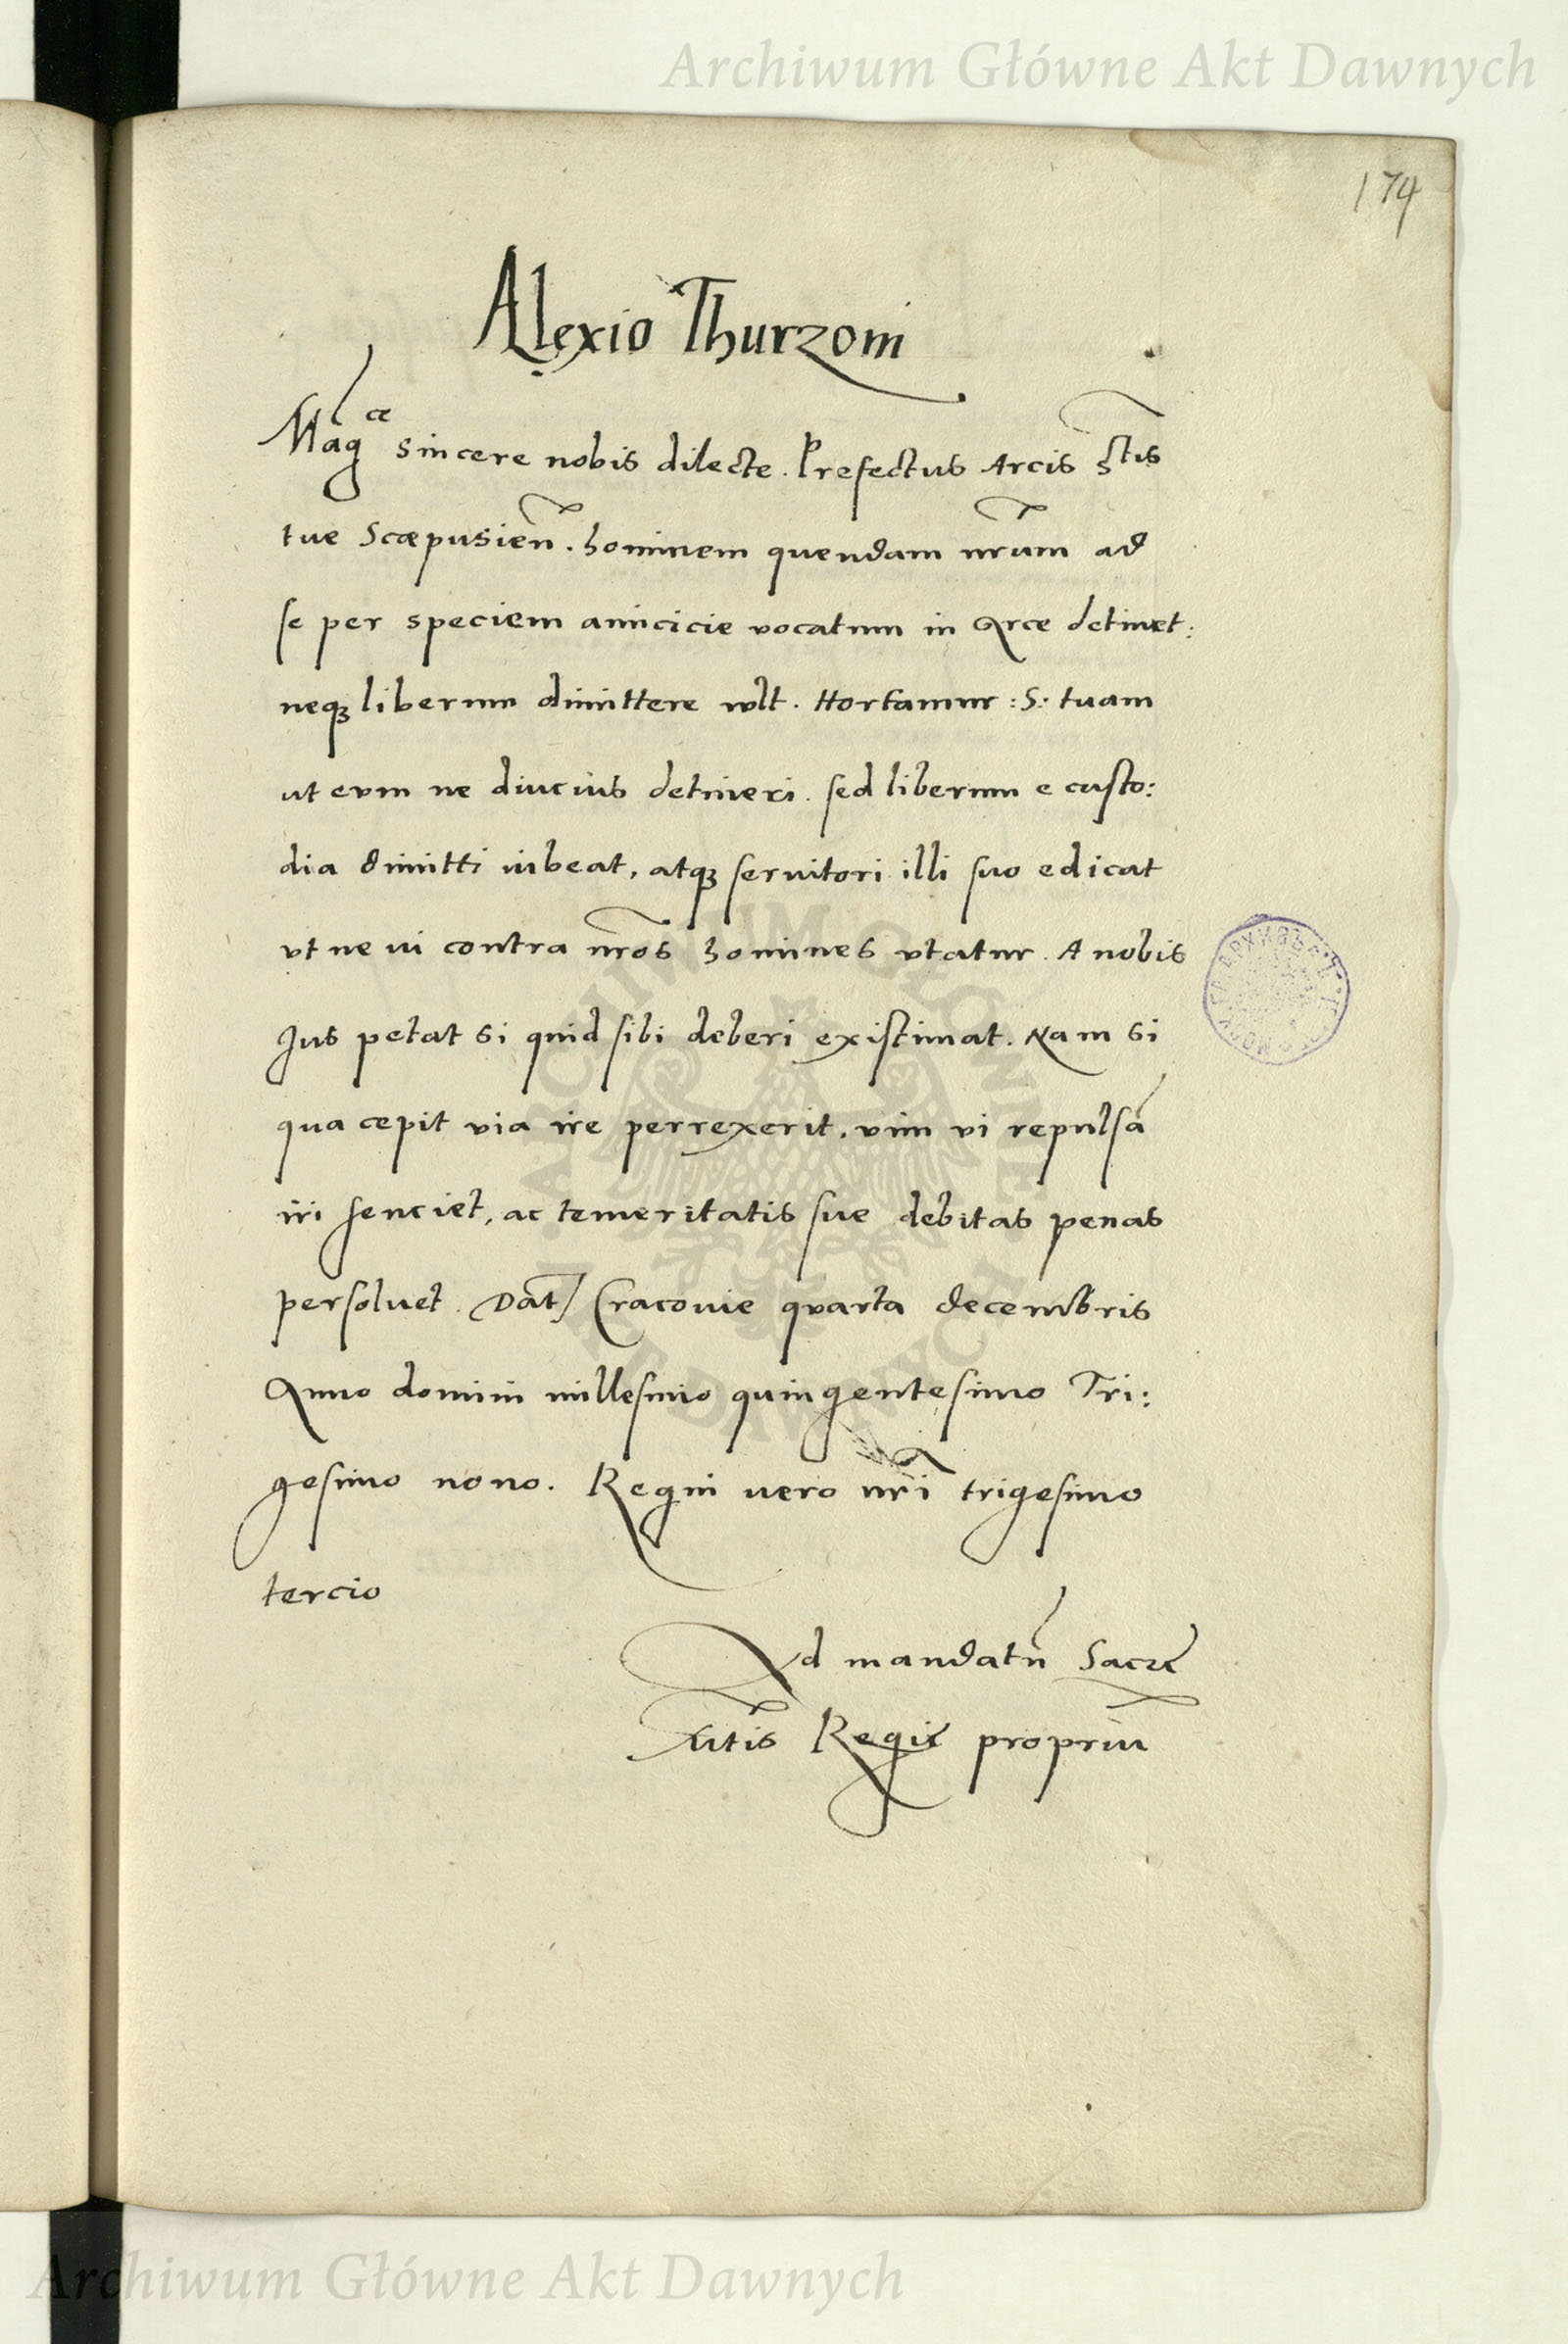 Archiwum Główne Akt Dawnych
174
Alexio Thurzoni
Magce sincere nobis dilecte. Prefectus Arcis Stis
tue Scæpusien̄. hominem quendam nr̄um ad
se per speciem amicicie vocatum in Arce detinet:
neqꝫ liberum dimittere vult. Hortamur :S: tuam
ut eum ne diucius detineri. sed liberum e custo:
dia dimitti iubeat, atqꝫ servitori illi suo edicat
vt ne vi contra nr̄os homines vtatur. A nobis
Jus petat si quid sibi deberi existimat. Nam si
qua cepit via ire perrexerit, vim vi repulsā
iri senciet, ac temeritatis sue debitas penas
persoluet. Dat̄ Cracouie quarta decembris
Anno domini millesimo quingentesimo Tri:
gesimo nono. Regni vero nr̄i trigesimo
tercio
Ad mandatū Sacre
Mt̄is Regie propriū
Archiwum Główne Akt Dawnych